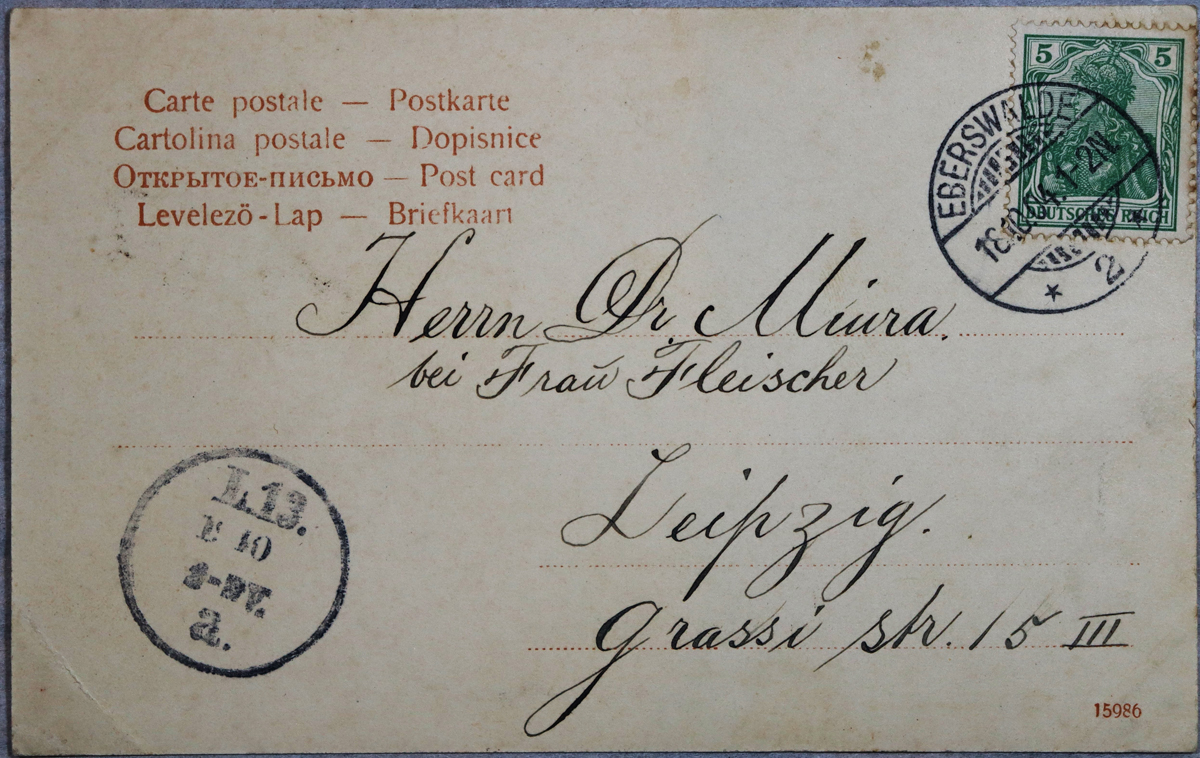 Carte postale — Postkarte
Cartolina postale — Dopisnice
Открытое-письмо — Post card
Levelező-Lap — Briefkaart
5 5
DEUTSCHES REICH
EBERSWALDE
1-2N.
* 2
Herrn Dr. Miura.
bei Frau Fleischer
Leipzig.
Grassi str. 15 III
L.13.
a.
15986